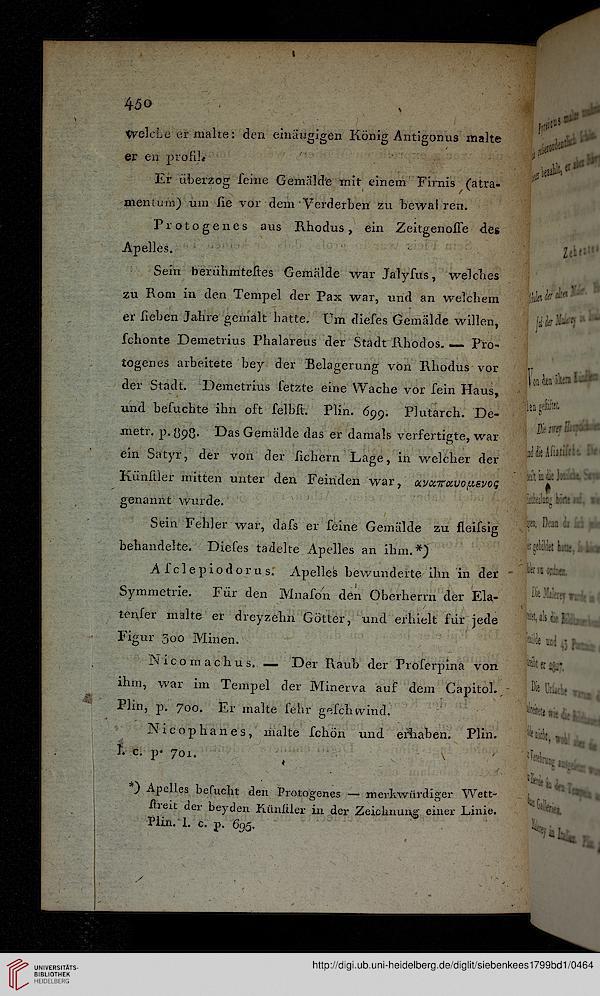 450
welche er malte: den einäugigen König Antigonus malte
er en profil.
Er überzog ſeine Gemälde mit einem Firnis (atra-
mentum) um ſie vor dem Verderben zu bewahren.
Protogenes aus Rhodus, ein Zeitgenoſſe des
Apelles.
Sein berühmteſtes Gemälde war Jalyſus, welches
zu Rom in den Tempel der Pax war, und an welchem
er ſieben Jahre gemalt hatte. Um dieſes Gemälde willen,
ſchonte Demetrius Phalareus der Stadt Rhodos. — Pro-
togenes arbeitete bey der Belagerung von Rhodus vor
der Stadt. Demetrius ſetzte eine Wache vor ſein Haus,
und beſuchte ihn oft ſelbſt. Plin. 699. Plutarch. De-
metr. p. 898. Das Gemälde das er damals verfertigte, war
ein Satyr, der von der ſichern Lage, in welcher der
Künſtler mitten unter den Feinden war, αναπαυομενος
genannt wurde.
Sein Fehler war, daſs er ſeine Gemälde zu fleiſsig
behandelte. Dieſes tadelte Apelles an ihm.*)
Aſclepiodorus. Apelles bewunderte ihn in der
Symmetrie. Für den Mnaſon den Oberherrn der Ela-
tenſer malte er dreyzehn Götter, und erhielt für jede
Figur 300 Minen.
Nicomachus. — Der Raub der Proſerpina von
ihm, war im Tempel der Minerva auf dem Capitol.
Plin, p. 700. Er malte ſehr geſchwind.
Nicophanes, malte ſchön und erhaben. Plin.
l. c. p. 701.
*) Apelles beſucht den Protogenes — merkwürdiger Wett-
ſtreit der beyden Künſtler in der Zeichnung einer Linie.
Plin. l. c. p. 695.
UNIVERSITÄTS-
BIBLIOTHEK
HEIDELBERG
http://digi.ub.uni-heidelberg.de/diglit/siebenkees1799bd1/0464